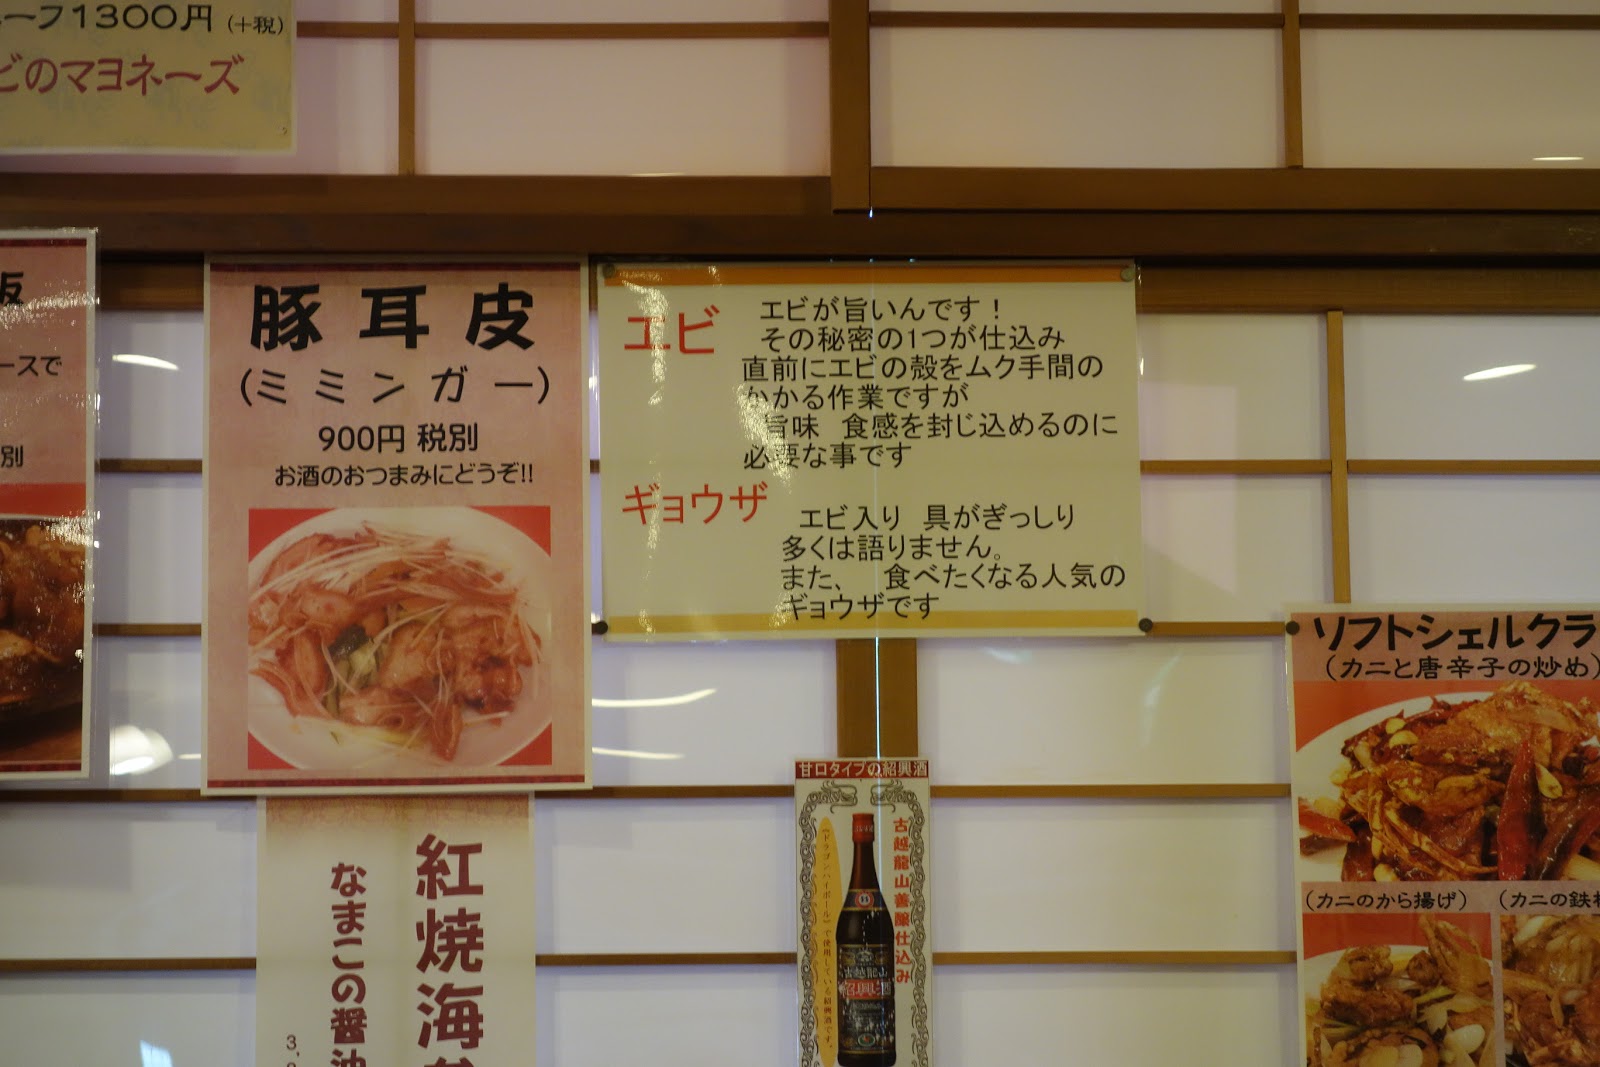 ープ1300円 (+税)
ビのマヨネーズ
飯
ースで
別
豚耳皮
(ミミンガー)
900円 税別
お酒のおつまみにどうぞ!!
エビ
エビが旨いんです！
その秘密の1つが仕込み
直前にエビの殻をムク手間の
かかる作業ですが
旨味 食感を封じ込めるのに
必要な事です
ギョウザ
エビ入り 具がぎっしり
多くは語りません。
また、 食べたくなる人気の
ギョウザです
紅焼海
なまこの醤油
3,
甘口タイプの紹興酒
古越龍山善醸仕込み
『ドラゴンハイボール』で使用している紹興酒です。
古越龍山
紹興酒
ソフトシェルクラ
(カニと唐辛子の炒め)
(カニのから揚げ)
(カニの鉄